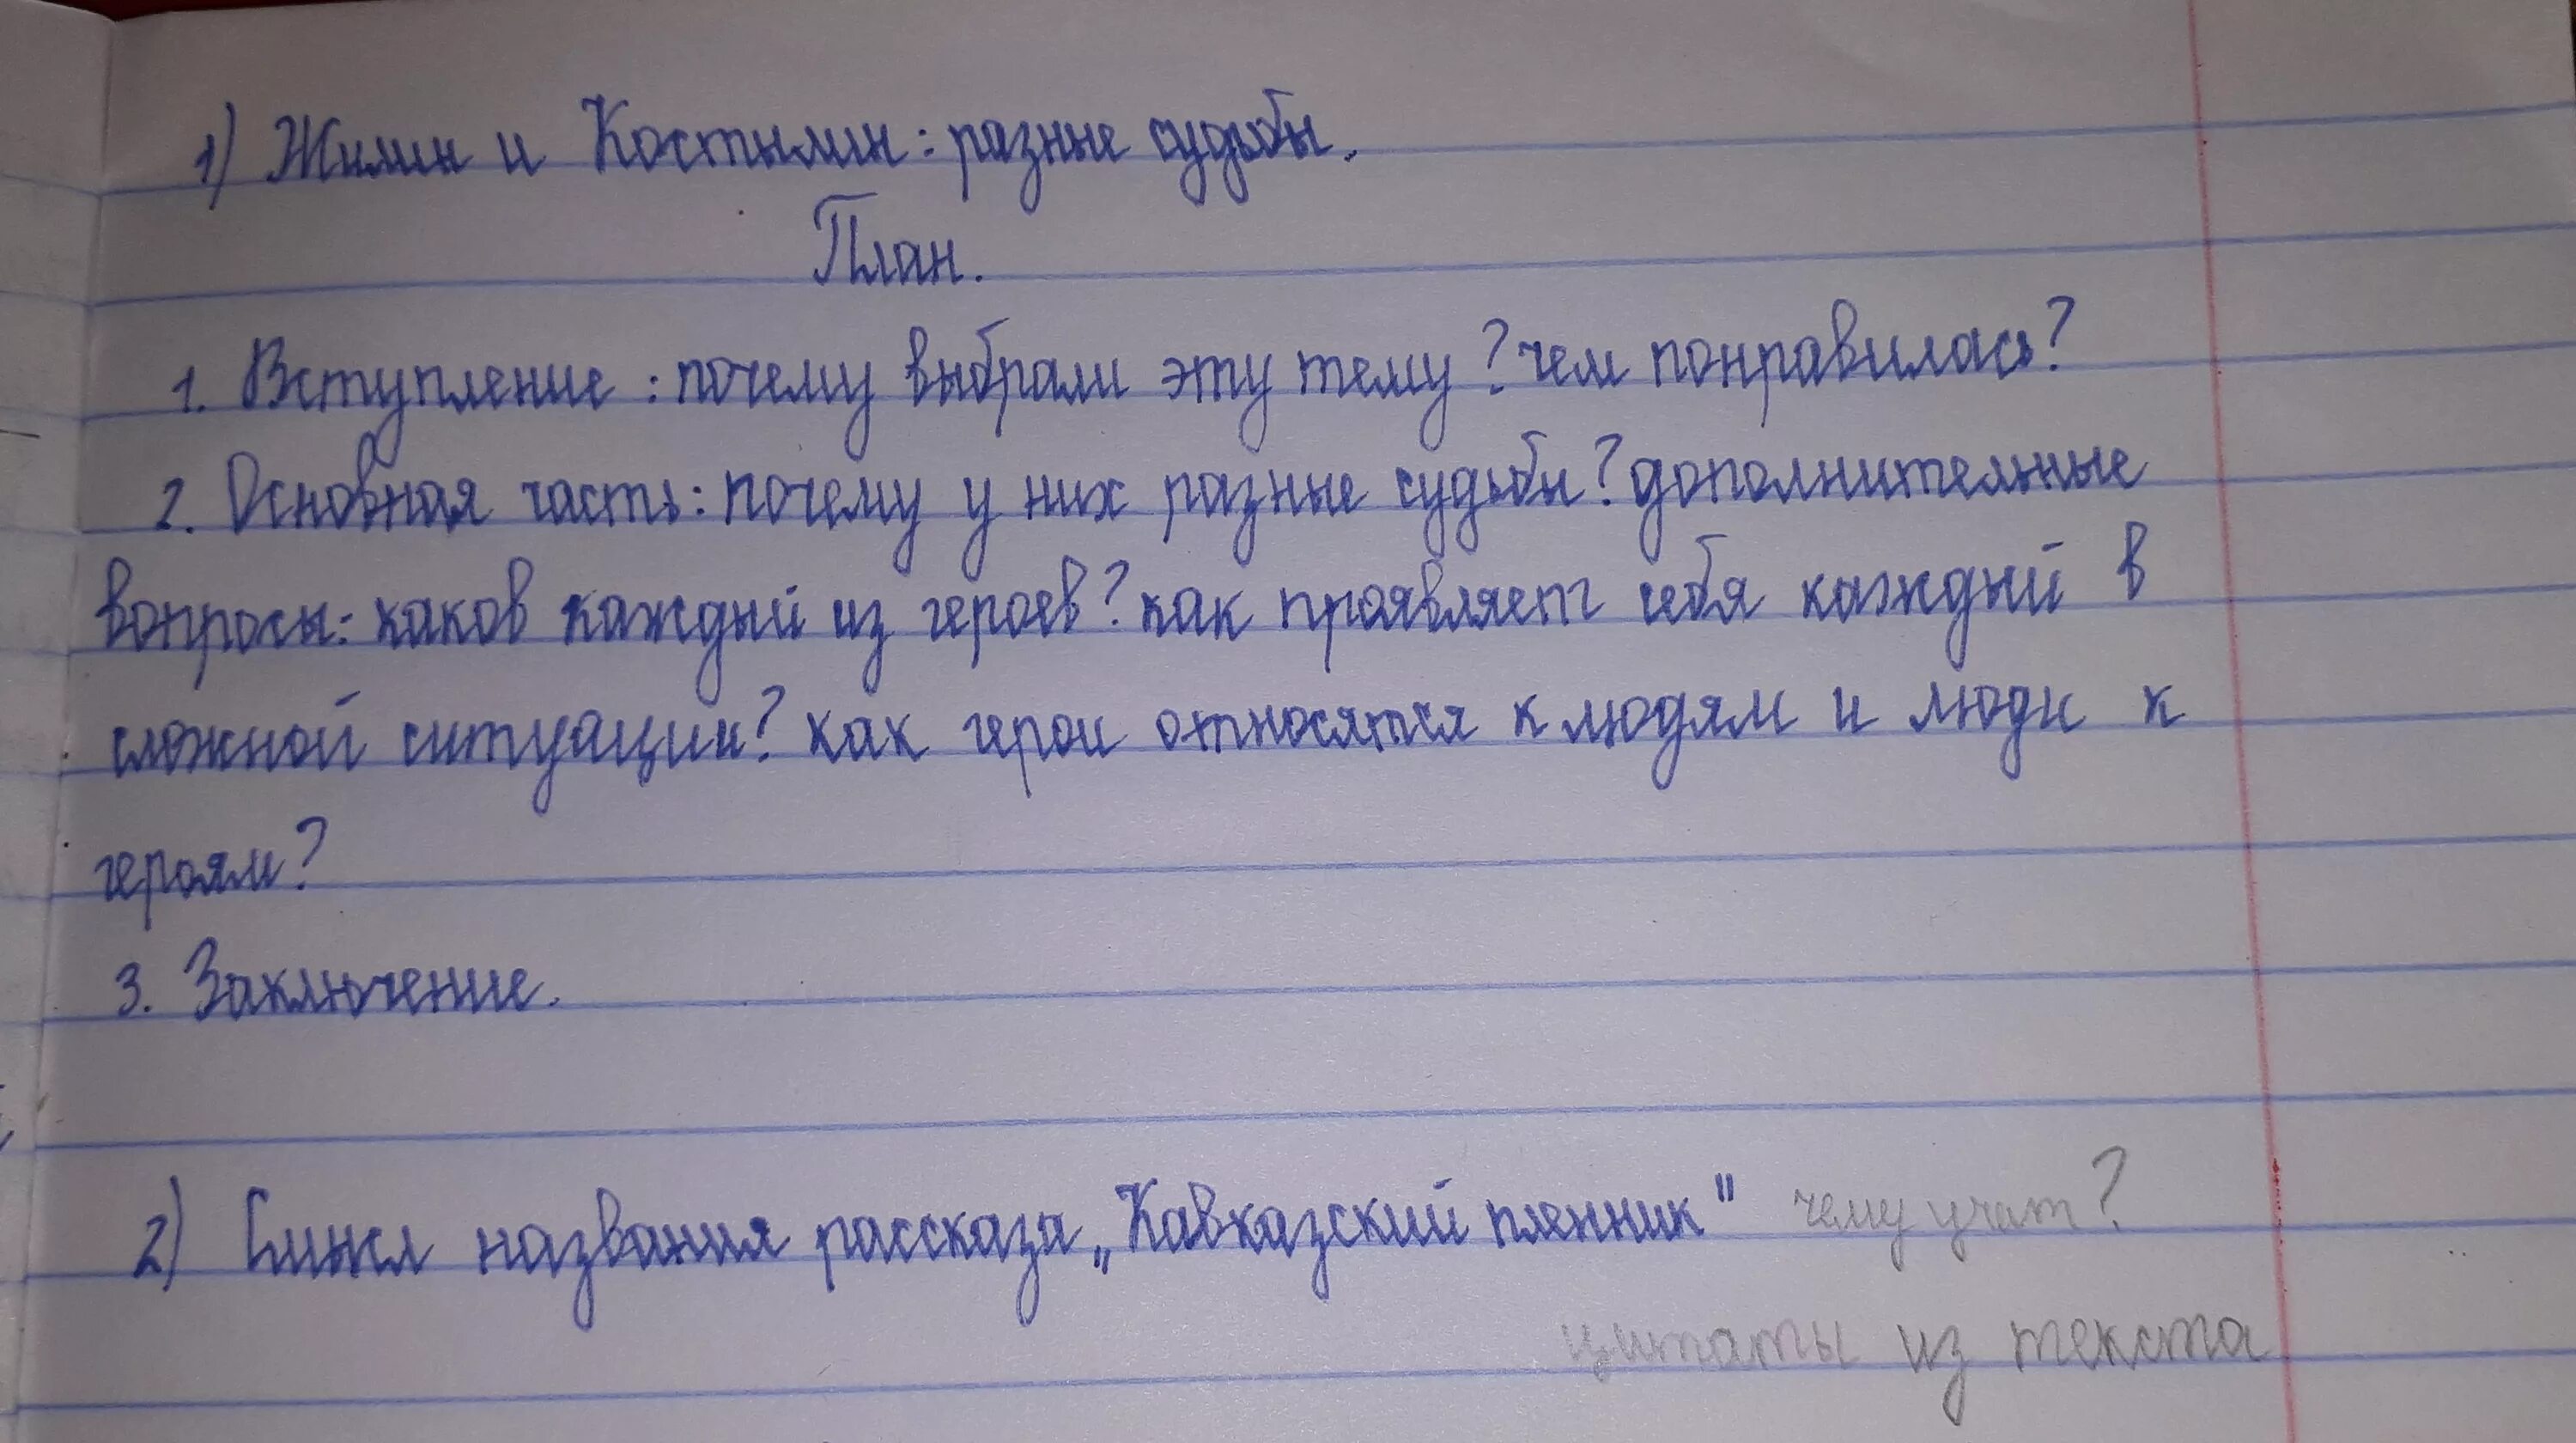 1) Жилин и Костылин: разные судьбы.
План.
1. Вступление: почему выбрали эту тему? чем понравилась?
2. Основная часть: почему у них разные судьбы? дополнительные
вопросы: каков каждый из героев? как проявляет себя каждый в
сложной ситуации? как герои относятся к людям и люди к
героям?
3. Заключение.
2) Смысл названия рассказа „Кавказский пленник" чему учат?
цитаты из текста